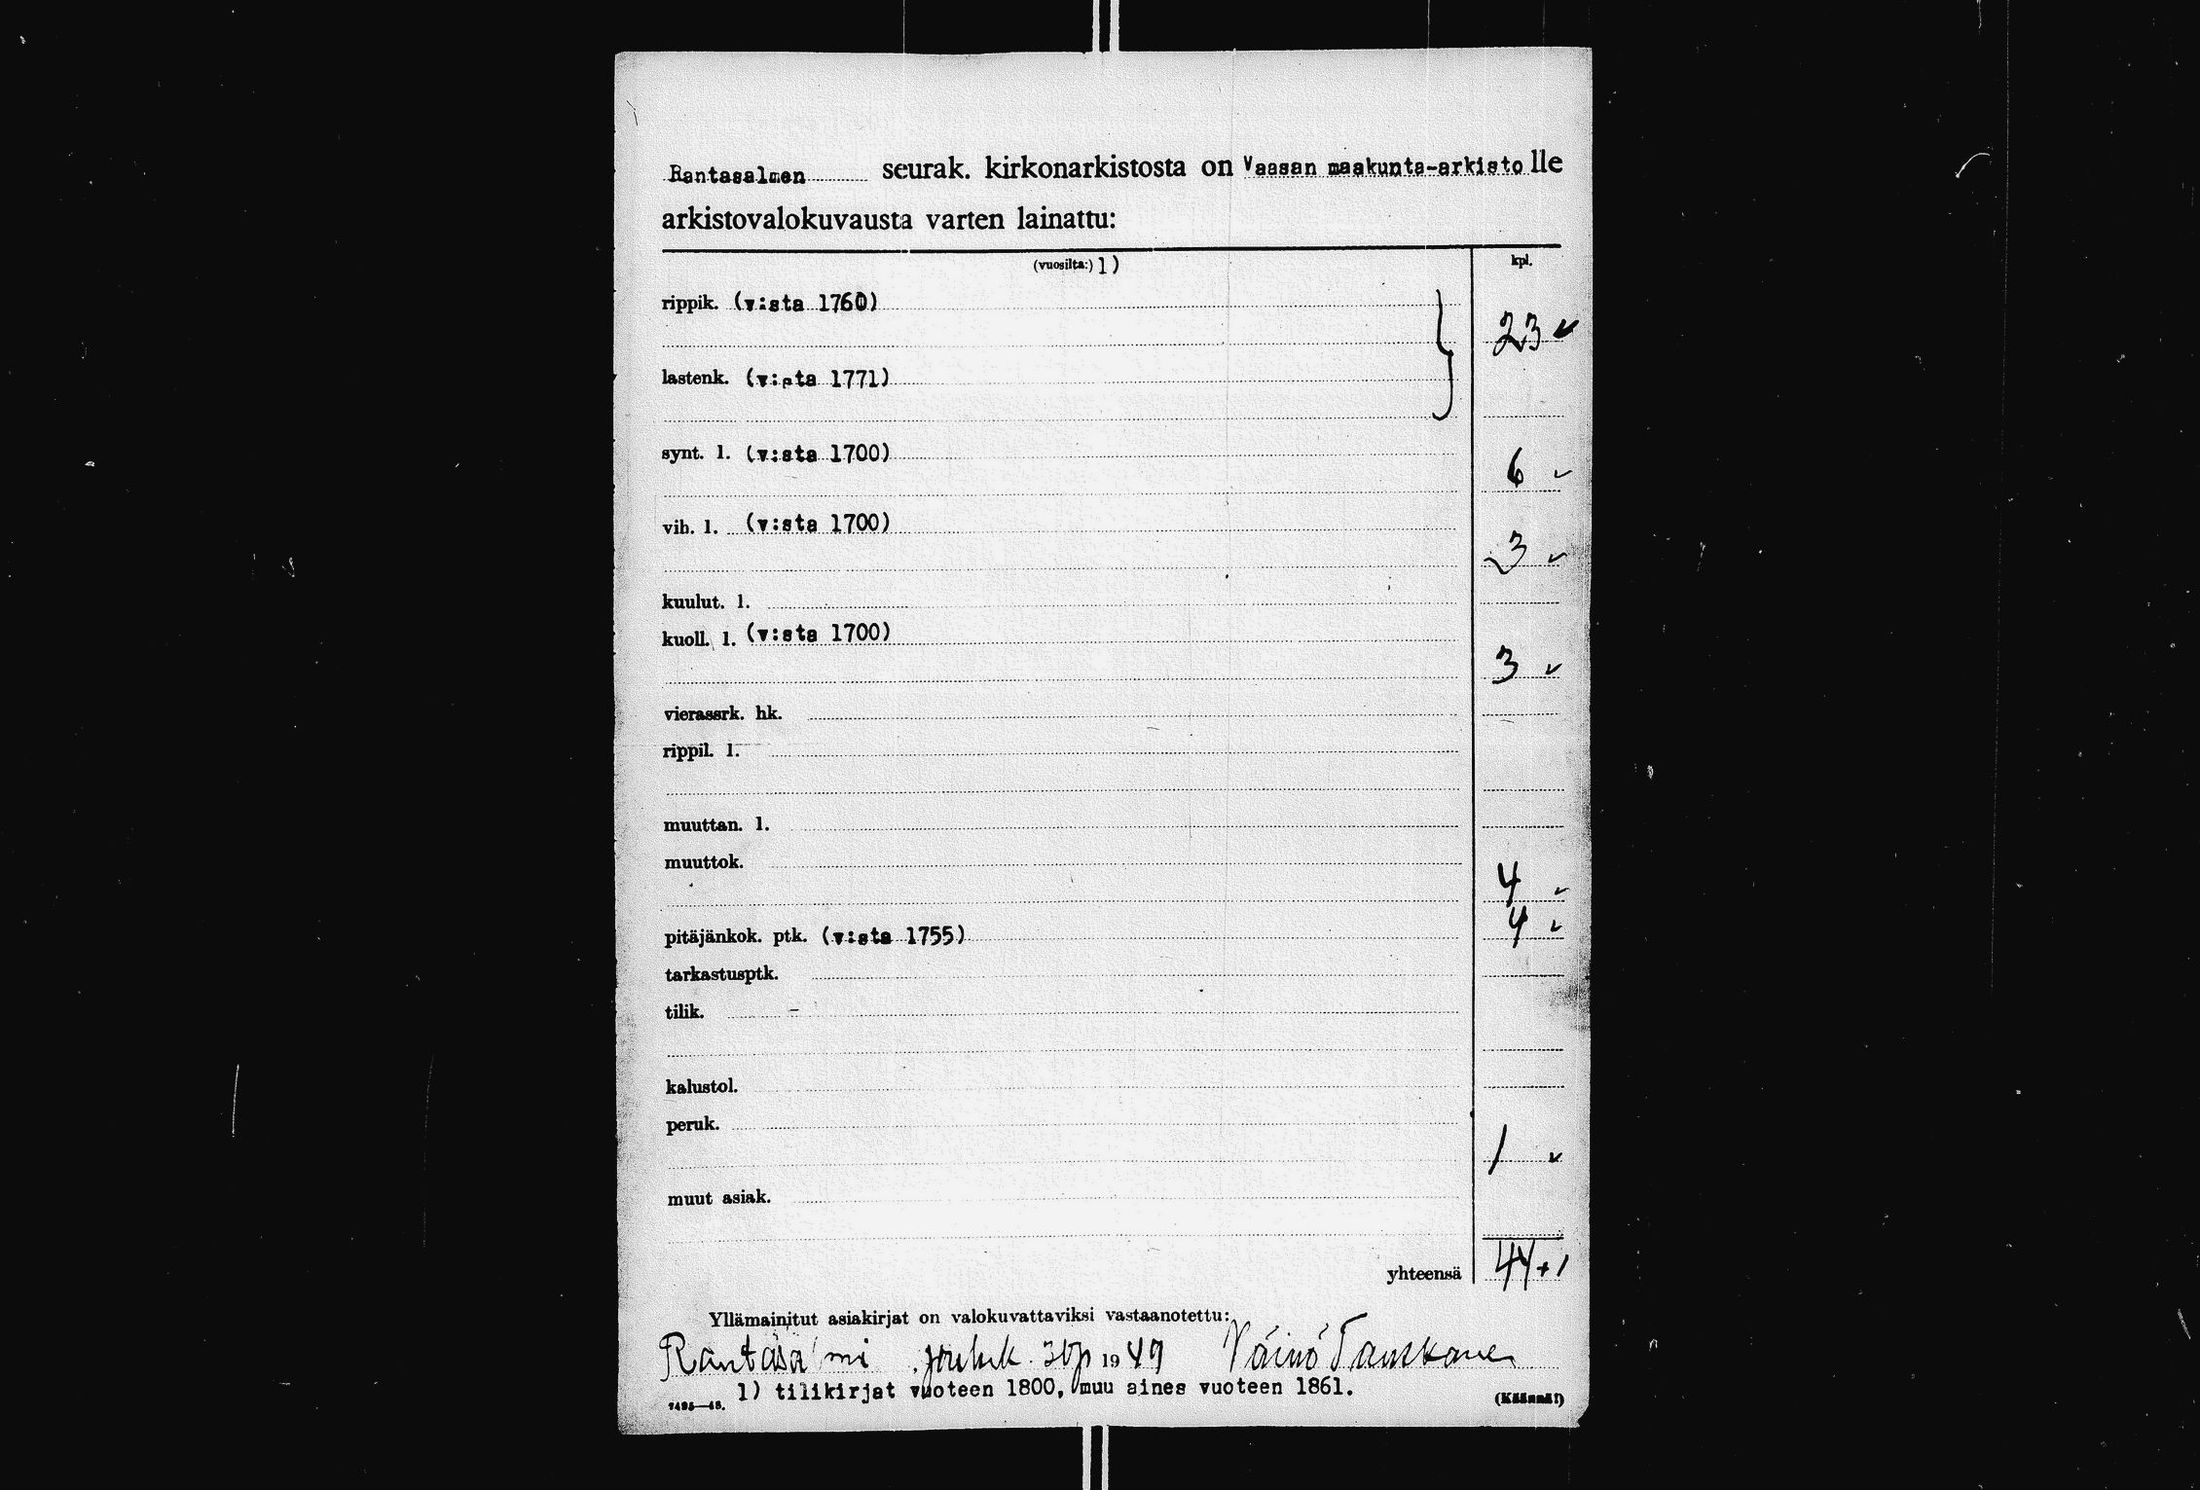 Rantasalmen seurak. kirkonarkistosta on Vaasan maakunta-arkistolle
arkistovalokuvausta varten lainattu:
(vuosilta:) 1) kpl.
rippik. (v:sta 1760) 23 ✓
lastenk. (v:sta 1771)
synt. l. (v:sta 1700) 6 ✓
vih. l. (v:sta 1700) 3 ✓
kuulut. l.
kuoll. l. (v:sta 1700) 3 ✓
vierassrk. hk.
rippil. l.
muuttan. l.
muuttok. 4 ✓
pitäjänkok. ptk. (v:sta 1755) 4 ✓
tarkastusptk.
tilik. –
kalustol.
peruk. 1 ✓
muut asiak.
yhteensä 44+1
Yllämainitut asiakirjat on valokuvattaviksi vastaanotettu:
Rantasalmi jouluk. 30p 1949 Väinö Tanskanen
1) tilikirjat vuoteen 1800, muu aines vuoteen 1861.
7495—48. (Käännä!)